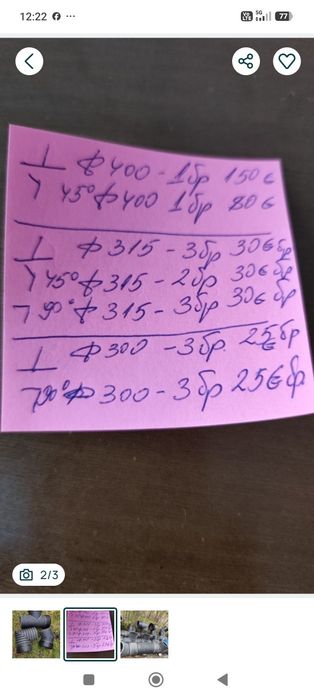 12:22
5G
77
⊥ ф400 - 1бр 150€
45° ф400 1бр 80€
⊥ ф315 - 3бр 30€бр
45° ф315 - 2бр 30€бр
90° ф315 - 3бр 30€бр
⊥ ф300 - 3бр 25€бр
90° ф300 - 3бр 25€бр
2/3